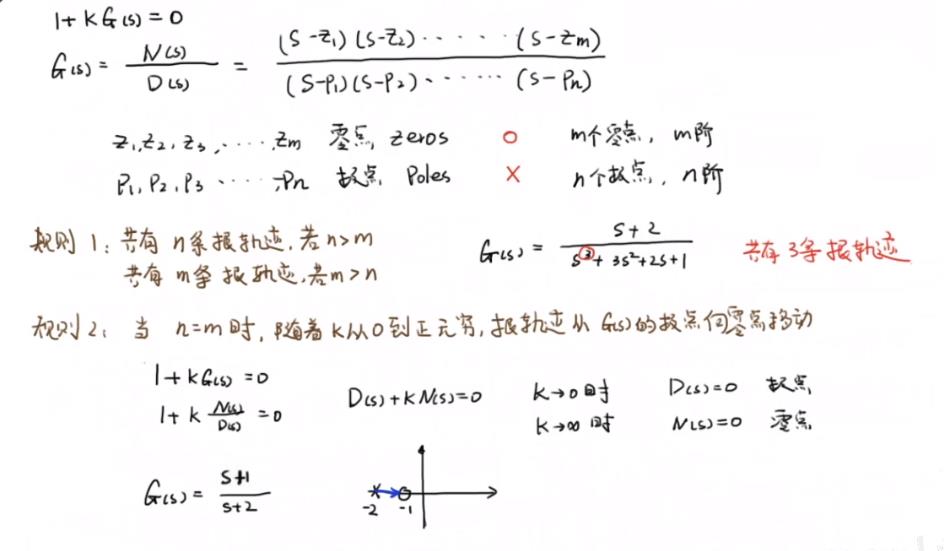 1+KG(s)=0
G(s)= N(s)/D(s) = (s-z1)(s-z2)·····(s-zm)/(s-p1)(s-p2)······(s-pn)
z1,z2,z3,·····,zm 零点 zeros ○ m个零点，m阶
p1,p2,p3 ·····,pn 极点 Poles × n个极点，n阶
规则1：共有n条根轨迹，若n>m
共有m条根轨迹，若m>n
G(s)= s+2/s³+3s²+2s+1 共有3条根轨迹
规则2：当 n=m时，随着K从0到正无穷，根轨迹从G(s)的极点向零点移动
1+KG(s)=0
1+K N(s)/D(s) =0
D(s)+KN(s)=0
K→0时 D(s)=0 极点
K→∞时 N(s)=0 零点
G(s)= s+1/s+2
-2 -1